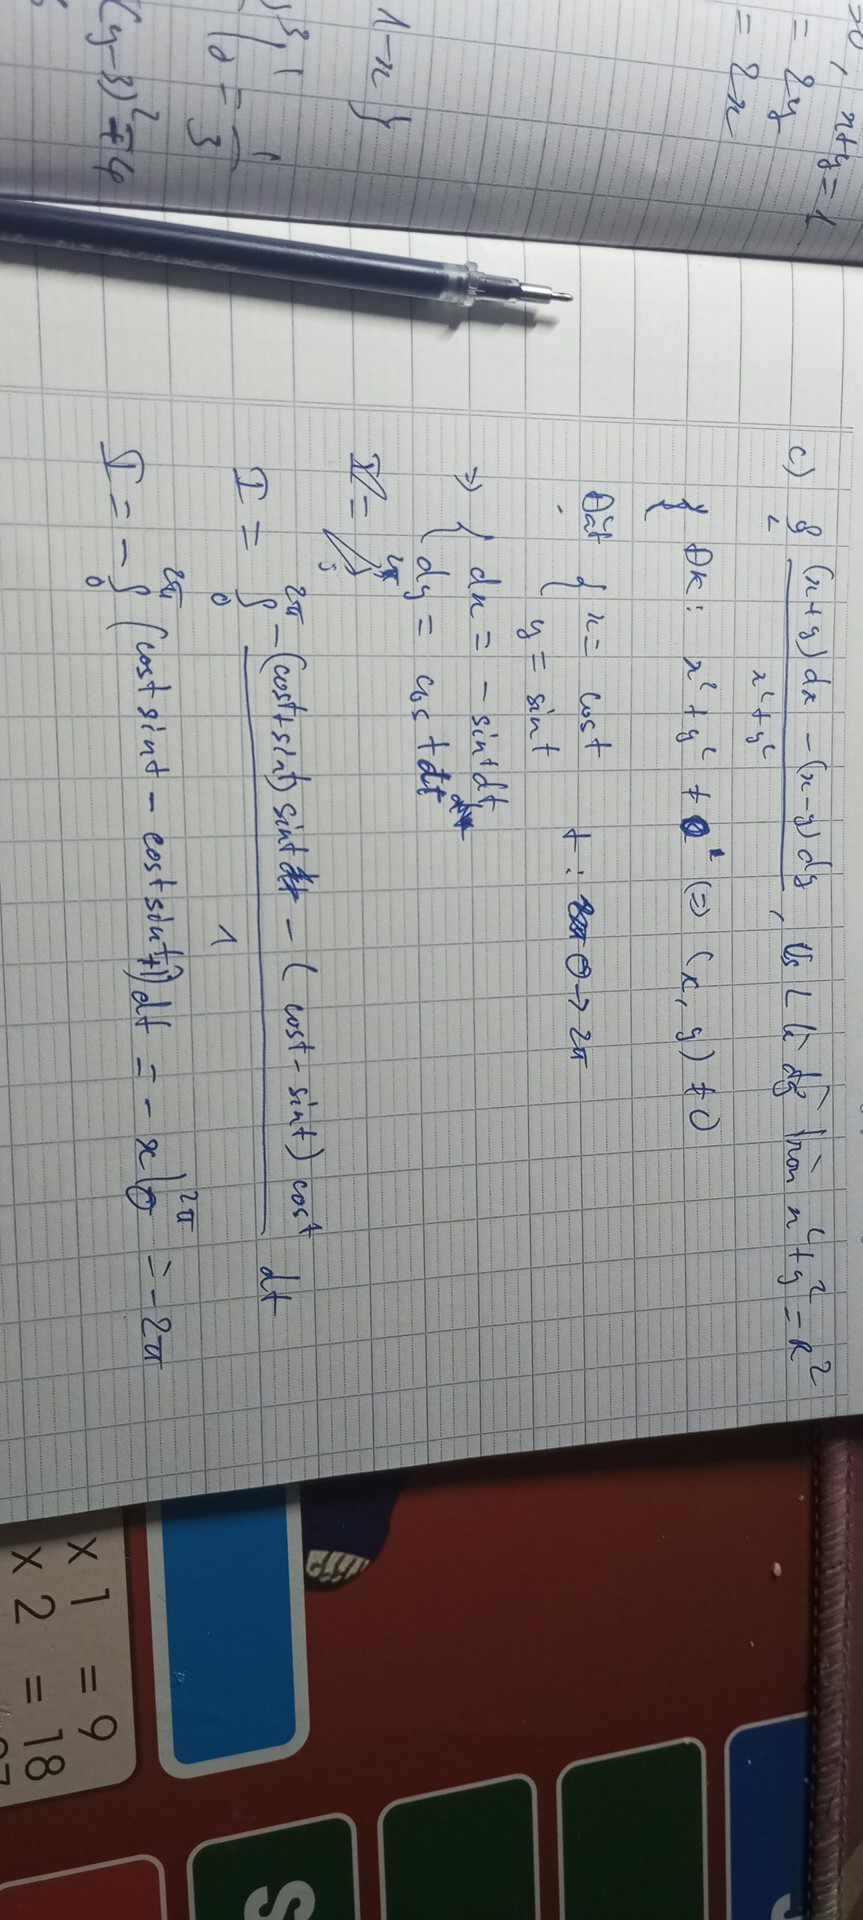 x+y=1
= 2y
= 2x
1-x }
= 1/3
(y-3)² = 4
c) ∮_L ((x+y)dx - (x-y)dy)/(x²+y²), Vs L là đg tròn x²+y²=R²
{ ĐK: x²+y² ≠ 0 (=) (x, y) ≠ 0
Đặt { x = cost
y = sint
t: 0 → 2π
=> { dx = -sint dt
dy = cost dt
I = ∫_0^{2π} (-(cost+sint) sint - (cost - sint) cost)/1 dt
I = -∫_0^{2π} (cost sint - cost sint+1) dt = -x|_0^{2π} = -2π
S
x 1 = 9
x 2 = 18